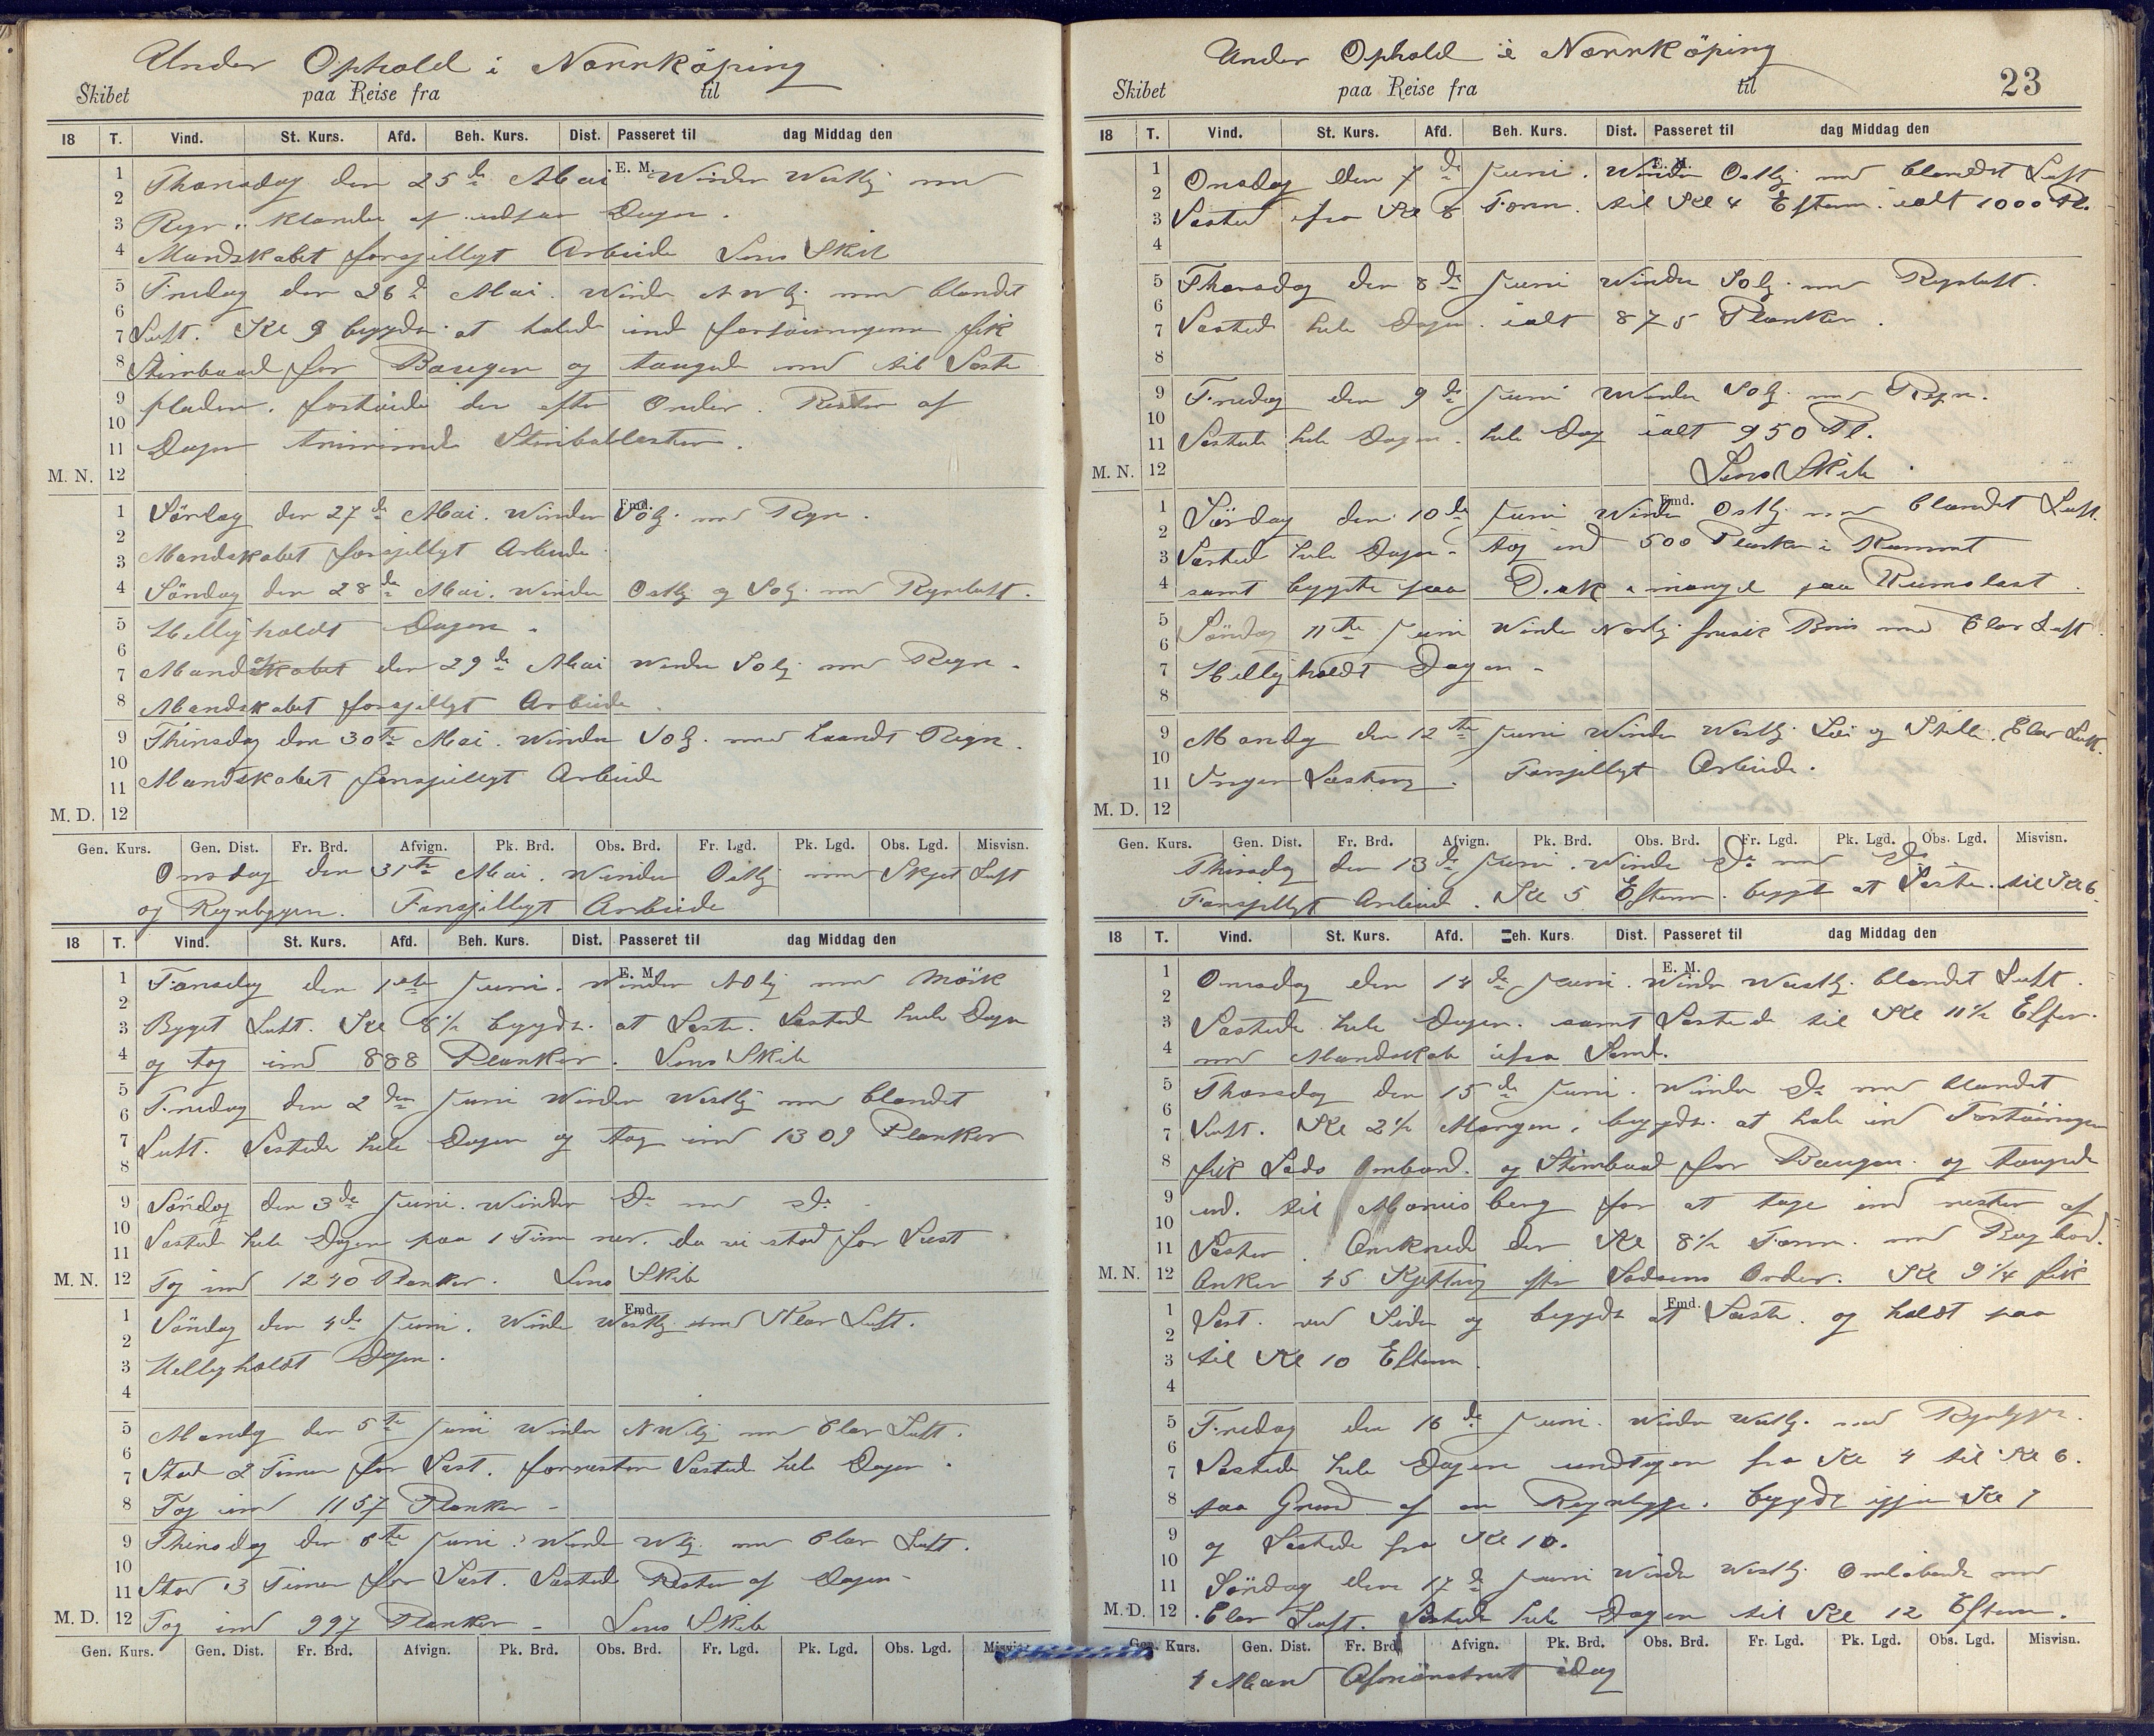 Under Ophold i Norrköping
Skibet paa Reise fra til
18 T. Vind. St. Kurs. Afd. Beh. Kurs. Dist. Passeret til dag Middag den
E. M.
1 Thorsdag den 25de Mai. Winden Westlig med
2
3 Regn. Klarede af udpaa Dagen.
4 Mandskabet forsjilligt Arbeide Lens Skib
5 Fredag den 26de Mai. Winden NWlig med blandet
6
7 Luft. Kl 9 begyndte at halede ind fortøiningerne fik
8 Stimbaad for Baugen og taugede ned til Laste
9 pladen. fortøiede der efter Order. Resten af
10
11 Dagen trimmede Stenballasten.
M. N. 12
Fmd.
1 Lørdag den 27de Mai. Winden SOlig med Regn.
2
3 Mandskabet forsjelligt Arbeide
4 Søndag den 28de Mai. Winden Ostlig og SOlig med Regnluft.
5 Helligholdt Dagen.
6
7 Mandag den 29de Mai Winden SOlig med Regn.
8 Mandskabet forsjelligt Arbeide.
9 Thirsdag den 30te Mai. Winden SOlig med haardt Regn.
10
11 Mandskabet forsjelligt Arbeide
M. D. 12
Gen. Kurs. Gen. Dist. Fr. Brd. Afvign. Pk. Brd. Obs. Brd. Fr. Lgd. Pk. Lgd. Obs. Lgd. Misvisn.
Onsdag den 31te Mai. Winden Ostlig med Skyet Luft
og Regnbyger. Forsjelligt Arbeide
18 T. Vind. St. Kurs. Afd. Beh. Kurs. Dist. Passeret til dag Middag den
E. M.
1 Torsdag den 1ste Juni. Winden NOlig med Mørk
2
3 Byget Luft. Kl 8½ begyndte at Laste. Lastede hele Dagen
4 og tog ind 888 Planker. Lens Skib
5
6 Fredag den 2den Juni Winden Westlig med blandet
7 Luft. Lastede hele Dagen og tog ind 1309 Planker
8
9 Søndag den 3de Juni. Winden Do med Do.
10
11 Lastede hele Dagen paa 1 Time ner. da vi stod for Last
M. N. 12 Tog ind 1240 Planker. Lens Skib
Fmd.
1 Søndag den 4de Juni. Winden Westlig med Klar Luft.
2
3 Helligholdt Dagen.
4
5 Mandag den 5te Juni Winden NWlig med klar Luft.
6
7 Stod 2 Timer for Last. forresten Lastede hele Dagen.
8 Tog ind 1157 Planker
9 Thirsdag den 6te Juni. Winden Wlig med klar Luft.
10
11 Stod 3 Timer for Last. Lastede Resten af Dagen
M. D. 12 Tog ind 997 Planker Lens Skib
Gen. Kurs. Gen. Dist. Fr. Brd. Afvign. Pk. Brd. Obs. Brd. Fr. Lgd. Pk. Lgd. Obs. Lgd.
Under Ophold i Norrköping 23
Skibet paa Reise fra til
18 T. Vind. St. Kurs. Afd. Beh. Kurs. Dist. Passeret til dag Middag den
E. M.
1 Onsdag den 7de Juni. Winden Ostlig med blandet Luft
2
3 Lasted fra Kl 8 Form. til Kl 4 Efterm. ialt 1000 Pl.
4
5 Thorsdag den 8de Juni Winden SOlig med Regnluft.
6
7 Lastede hele Dagen. ialt 875 Planker.
8
9 Fredag den 9de Juni Winden SOlig med Regn.
10
11 Lastede hele Dagen. hele Dag ialt 950 Pl.
M. N. 12 Lens Skib.
Fmd.
1 Lørdag den 10de Juni Winden Ostlig med blandet Luft.
2
3 Lastede hele Dagen. tog ind 500 Planker i Rummet
4 samt bygte paa Dæk i mangel paa Rumslast.
5 Søndag 11te Juni Winden Nordlig frisk Bris med klar Luft.
6
7 Helligholdt Dagen
8
9 Mandag den 12te Juni Winden Westlig Løi og Stille. Klar Luft.
10
11 Ingen Lastning. Forsjelligt Arbeide.
M. D. 12
Gen. Kurs. Gen. Dist. Fr. Brd. Afvign. Pk. Brd. Obs. Brd. Fr. Lgd. Pk. Lgd. Obs. Lgd. Misvisn.
Thirsdag den 13de Juni. Winden Do med Do
Forsjelligt Arbeid. Kl 5 Efterm. begyt at Laste. til Kl 6.
18 T. Vind. St. Kurs. Afd. Beh. Kurs. Dist. Passeret til dag Middag den
E. M.
1 Onsdag den 14de Juni. Winden Westlig. blandet Luft.
2
3 Lastede hele Dagen. samt Lastede til Kl 11½ Efter.
4 med Mandskab ifra Land.
5 Thorsdag den 15de Juni. Winden Do med blandet
6
7 Luft. Kl 2½ Morgen. begyndte at hale ind Fortøiningen
8 fik Lods Ombord. og Stimbaad for Baugen. og taugede
9 ud. til Marnisberg for at tage ind resten af
10
11 Lasten. Ankrede der Kl 8½ Form. med Bagbord.
M. N. 12 Anker 45 Kjetting efter Lodsens Order. Kl 9¼ fik
Fmd.
1 Last. ved Siden og begyndte at Laste. og holdt paa
2
3 til Kl 10 Efterm.
4
5 Fredag den 16de Juni. Winden Westlig. med Regnbyger.
6
7 Lastede hele Dagen undtagen fra Kl 4 til Kl 6.
8 paa Grund af en Regnbyge. begyndte igjen Kl 7
9 og Lastede fra Kl 10.
10
11 Søndag den 17de Juni Winden Westlig Omløbende med
M. D. 12 Klar Luft. Lastede hele Dagen til Kl 12 Efterm.
Gen. Kurs. Gen. Dist. Fr. Brd. Afvign. Pk. Brd. Obs. Brd. Fr. Lgd. Pk. Lgd. Obs. Lgd. Misvisn.
4 Mand Afmønstret idag